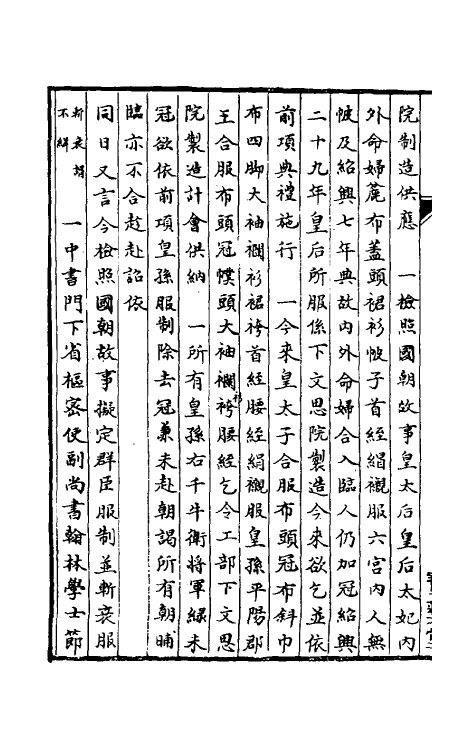 院制造供應　一檢照國朝故事皇太后皇后太妃内
外命婦麄布蓋頭裙衫帔子首絰絹襯服六宫内人無
帔及紹興七年典故内外命婦合入臨人仍加冠紹興
二十九年皇后所服係下文思院製造今來欲乞並依
前項典禮施行　一今來皇太子合服布頭冠布斜巾
布四脚大袖襴衫裙袴首絰腰絰絹襯服皇孫平陽郡
王合服布頭冠幞頭大袖襴衫袴腰絰乞令工部下文思
院製造計會供納　一所有皇孫右千牛衛將軍緣未
冠欲依前項皇孫服制除去冠兼未赴朝謁所有朝晡
臨亦不合趁赴詔依
同日又言今檢照國朝故事擬定羣臣服制並斬衰服
斬衰謂
不緝　一中書門下省樞密使副尚書翰林學士節